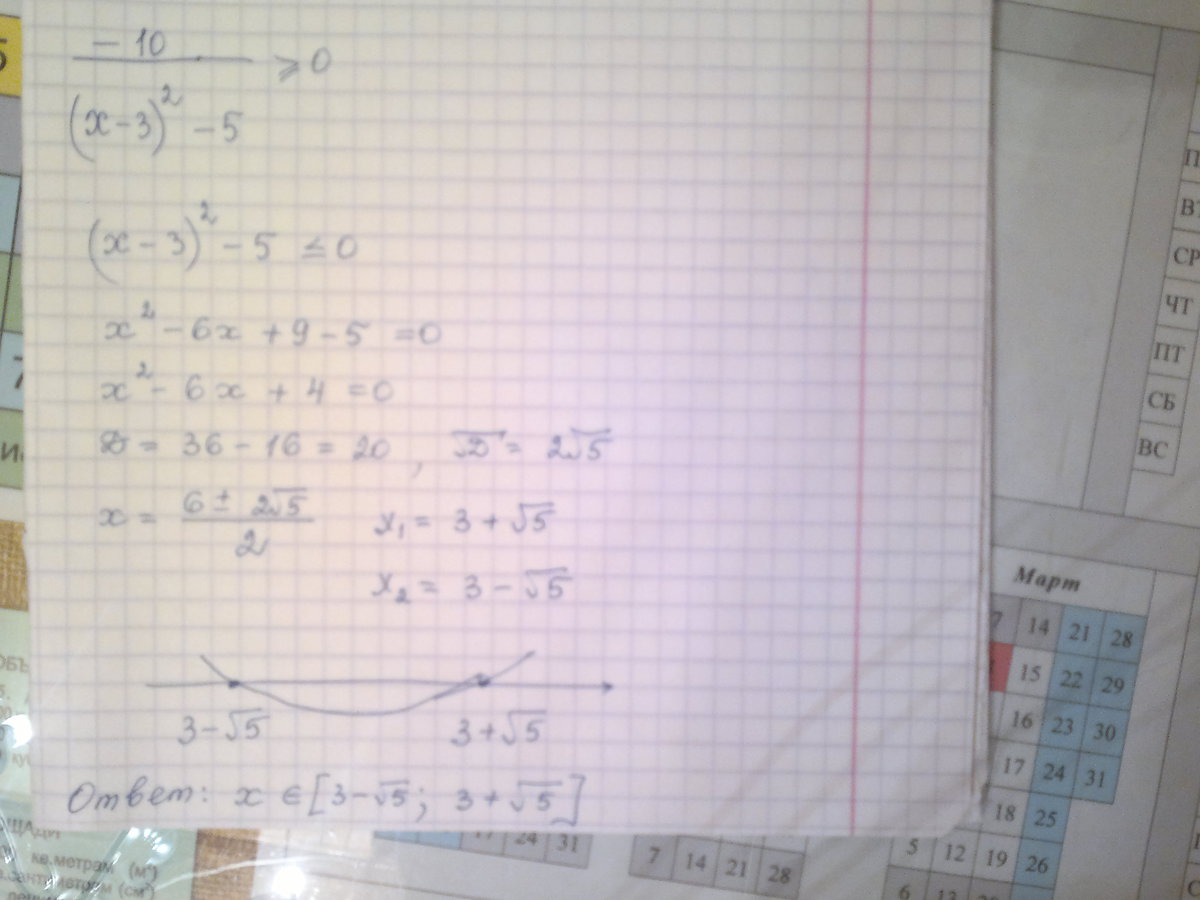 -10 / ((x-3)² - 5) ⩾ 0
(x-3)² - 5 ≤ 0
x² - 6x + 9 - 5 = 0
x² - 6x + 4 = 0
D = 36 - 16 = 20, √D = 2√5
x = (6 ± 2√5) / 2 x₁ = 3 + √5
x₂ = 3 - √5
3-√5 3+√5
Ответ: x ∈ [3-√5; 3+√5]
ВТ
СР
ЧТ
ПТ
СБ
ВС
Март
7 14 21 28
15 22 29
16 23 30
17 24 31
18 25
5 12 19 26
24 31
7 14 21 28
кв.метрам (м²)
(см²)